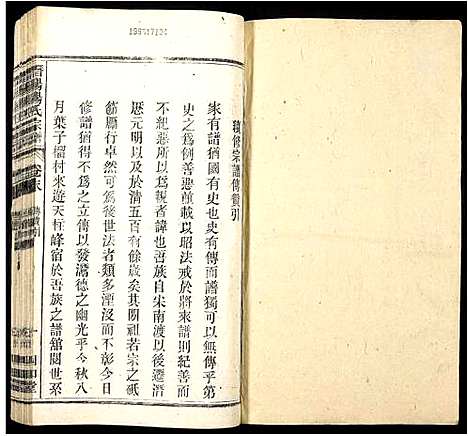 續修宗譜傳贊引
家有譜猶國有史也史有傳而譜獨可以無傳乎第
史之爲例善惡兼載以昭法戒於將來譜則紀善而
不紀惡所以爲親者諱也吾族自宋南渡以後遷
歷元明以及於清五百有餘歲矣其間祖若宗之砥
節勵行卓然可爲後世法者類多湮沒而不彰今日
修譜猶得不爲之立傳以發潛德之幽光乎今秋八
月葉子榴村來遊天柱峰宿於吾族之譜舘閱世系
氏宗譜
卷末